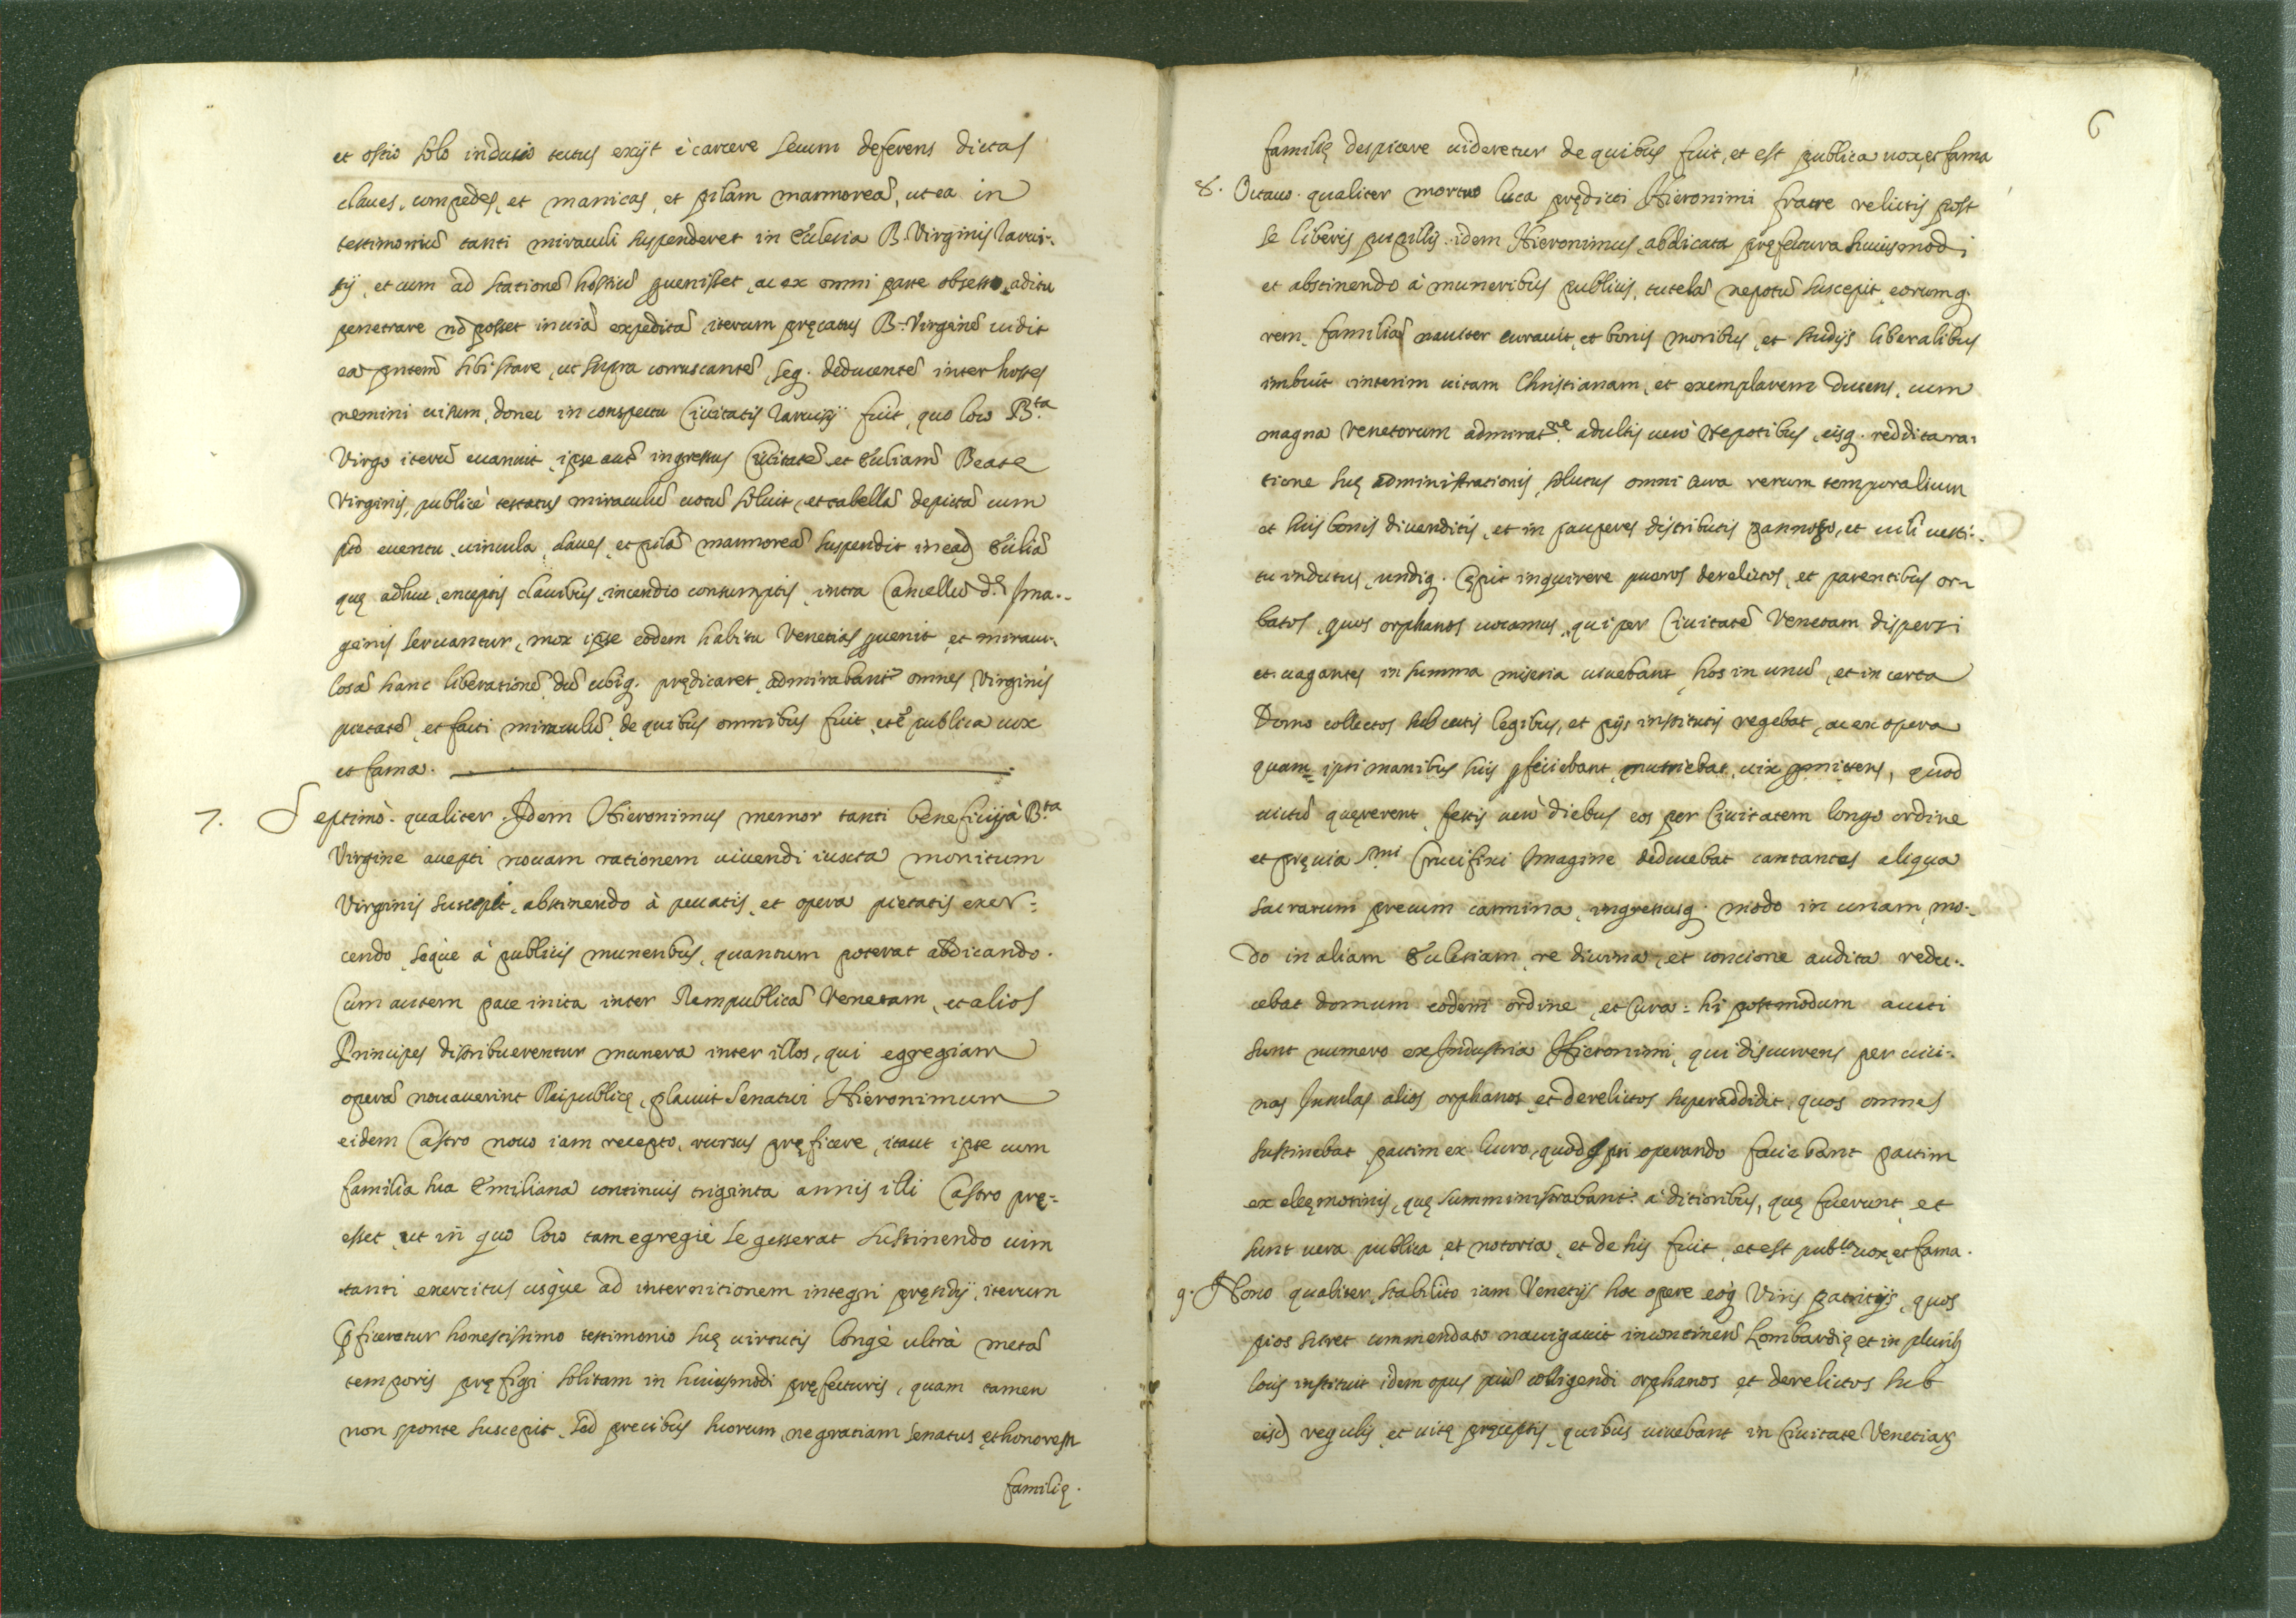 et ostio solo indusio tectus exijt è carcere secum deferens dictas
claues, compedes, et manicas, et pilam marmoreã, ut ea in
testimoniũ tanti miraculi suspenderet in Ecclesia B. Virginis Tarui-
sij, et cum ad stationẽ hostiũ ꝑuenisset, ac ex omni parte obsesso aditu
penetrare nõ posset in uiã expeditã, iterum pręcatus B. Virginẽ uidit
eã pñtem sibi stare, ut supra corruscantẽ, seq. deducentẽ inter hostes
nemini uisum, donec in conspectu Ciuitatis Taruisij fuit, quo loco B.ta
Virgo iterũ euanuit, ipse autẽ ingressus Ciuitatẽ et Eccliam Beatę
Virginis, publicè testatus miraculũ uotũ soluit, et tabellã depictã cum
pto euentu, uincula, claues, et pilã marmoreã suspendit in eađ Eccliã
quę adhuc, exceptis clauibus, incendio consumptis, intra Cancellũ d.ę Ima-
ginis seruantur, mox ipse eodem habitu Venetias ꝑuenit, et miracu-
losã hanc liberationẽ, dũ ubiq. prędicaret, admirabantʳ omnes Virginis
pietatẽ, et facti miraculũ, de quibus omnibus fuit, et ẽ publica uox
et fama.
7. Septimò. qualiter Idem Hieronimus memor tanti beneficij à B.ta
Virgine accepti nouam rationem uiuendi iuxta monitum
Virginis suscepit, abstinendo à peccatis, et opera pietatis exer-
cendo, seque à publicis muneribus, quantum poterat abdicando.
Cum autem pace inita inter Rempublicã Venetam, et alios
Principes distribuerentur munera inter illos, qui egregiam
operã nouauerint Reipublicę, placuit Senatui Hieronimum
eidem Castro nouo iam recepto, rursus pręficere, ita ut ipse cum
familia sua Emiliana continuis triginta annis illi Castro prę-
esset, ut in quo loco tam egregiè se gesserat sustinendo uim
tanti exercitus usque ad internitionem integri pręsidij, iterum
ꝑficeretur honestissimo testimonio suę uirtutis longè ultrà metã
temporis pręfigi solitam in huiusmodi pręfecturis, quam tamen
non sponte suscepit, sed precibus suorum, ne gratiam Senatus, et honorem
familię.
6
familię despicere uideretur de quibus fuit, et est publica uox, et fama
8. Octauo. qualiter mortuo Luca prędicti Hieronimi fratre relictis post
se liberis pupillis, idem Hieronimus, abdicata pręfectura huiusmodi
et abstinendo à muneribus publicis, tutelã nepotũ suscepit, eorumq.
rem familiã nauiter curauit, et bonis moribus, et studijs liberalibus
imbuit interim uitam Christianam, et exemplarem ducens, cum
magna Venetorum admirat.ne adultis uerò Nepotibus, eisq. reddita ra-
tione suę administrationis, solutus omni cura rerum temporalium
et suis bonis diuenditis, et in pauperes distributis pannoso, et uili uesti-
tu indutus, undiq. cępit inquirere pueros derelictos, et parentibus or-
batos, quos orphanos uocamus, qui per Ciuitatẽ Venetam dispersi
et uagantes in summa miseria uiuebant, hos in unũ, et in certa
Domo collectos sub certis legibus, et pijs institutis regebat, ac ex opera
quam ipsi manibus suis ꝑficiebant, nutriebat, uix ꝑmittens, quod
uictũ quęrerent, festis uerò diebus eos per Ciuitatem longo ordine
et pręuia S.mi Crucifixi Imagine deducebat cantantes aliqua
sacrarum precum carmina, ingressusq. modo in unam, mo-
do in aliam Ecclesiam, re diuina, et concione audita redu-
cebat domum eodem ordine, et Cura: hi postmodum aucti
sunt numero ex Industria Hieronimi, qui discurrens per uici-
nas Insulas alios orphanos, et derelictos superaddidit, quos omnes
sustinebat partim ex lucro, quod ipsi operando faciebant partim
ex elęmosinis, quę sumministrabantʳ à ditioribus, quę fuerunt, et
sunt uera publica, et notoria, et de his fuit, et est pub.ca uox, et fama.
9. Nono qualiter, stabilito iam Venetijs hoc opere eoq. Viris patritijs, quos
pios sciret commendato nauigauit in continenẽ Lombardię et in plurib.
locis instituit idem opus piũ colligendi orphanos et derelictos sub
eisđ regulis, et uitę pręceptis, quibus uiuebant in Ciuitate Venetiaꝝ